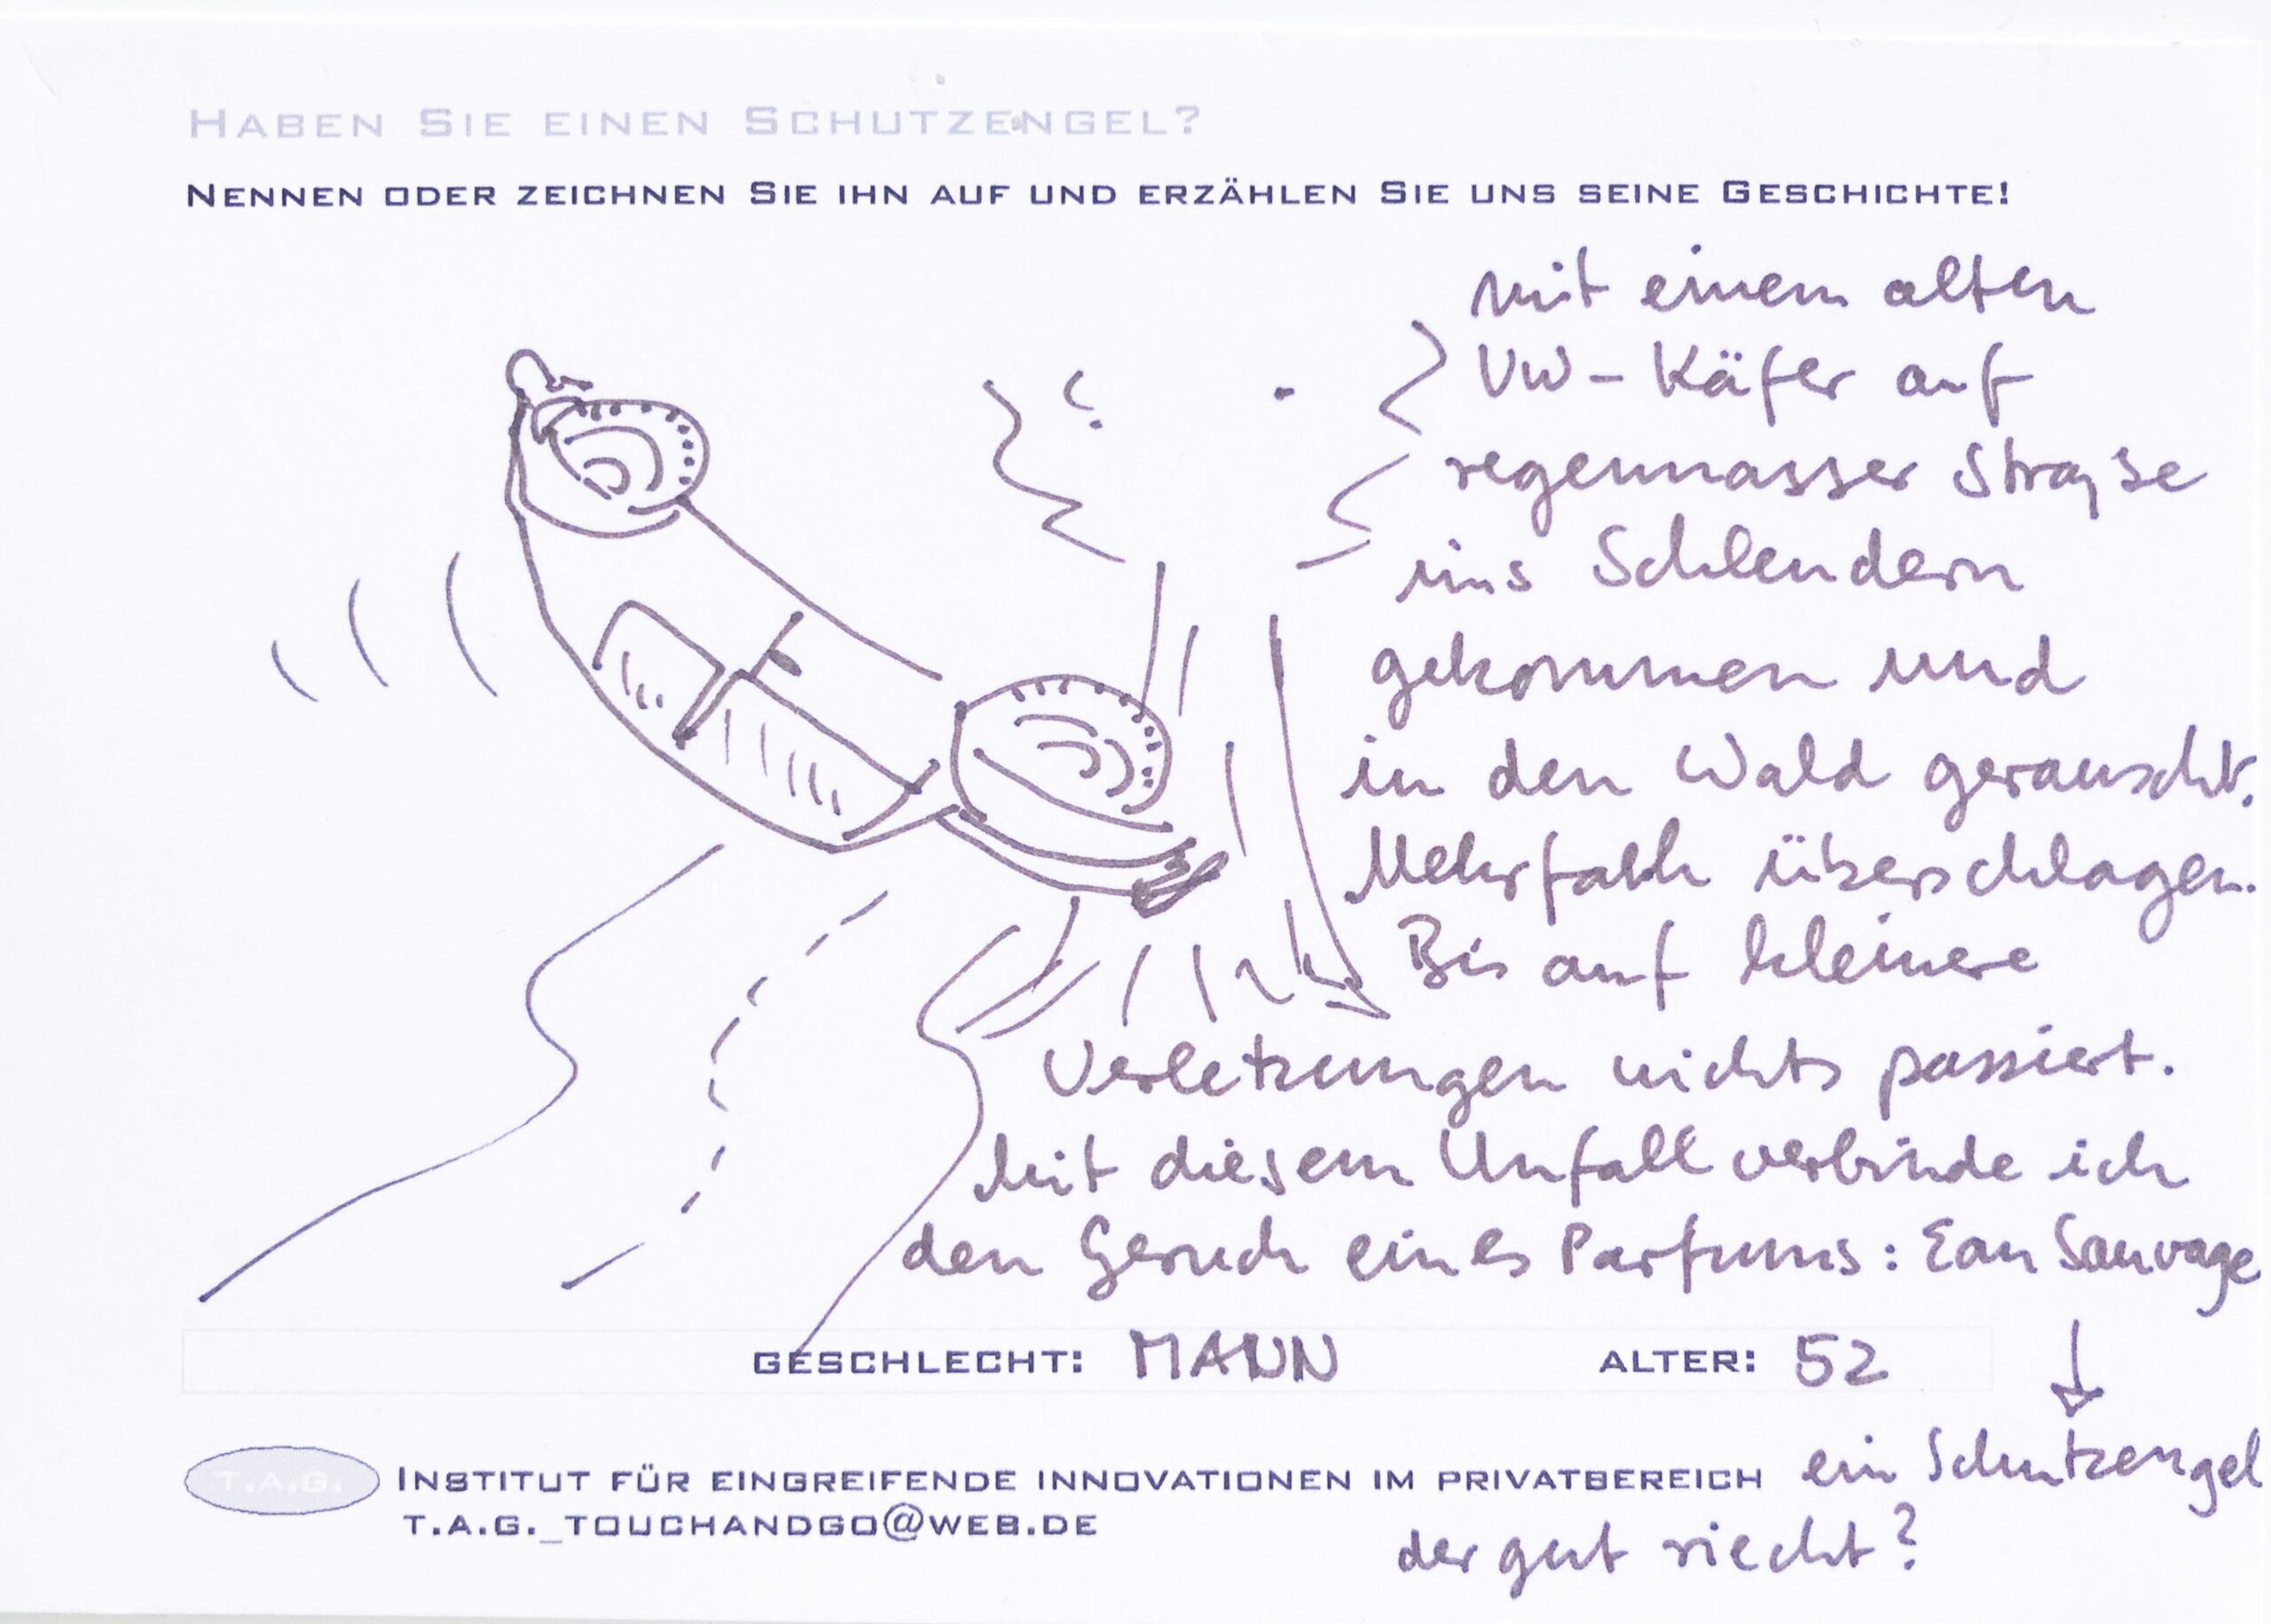 HABEN SIE EINEN SCHUTZENGEL?
NENNEN ODER ZEICHNEN SIE IHN AUF UND ERZÄHLEN SIE UNS SEINE GESCHICHTE!
mit einem alten
VW-Käfer auf
regennasser Strasse
ins Schlendern
gekommen und
in den Wald gerauscht.
Mehrfach überschlagen.
Bis auf kleinere
Verletzungen nichts passiert.
Mit diesem Unfall verbinde ich
den Geruch eines Parfums: Eau Sauvage
GESCHLECHT: MANN ALTER: 52
ein Schutzengel
der gut riecht?
T.A.G. INSTITUT FÜR EINGREIFENDE INNOVATIONEN IM PRIVATBEREICH
T.A.G._TOUCHANDGO@WEB.DE